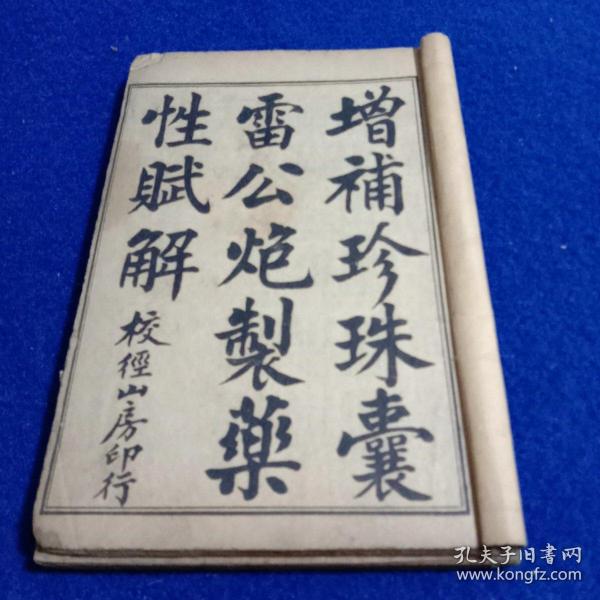 增補珍珠囊
雷公炮製藥
性賦解
校經山房印行
孔夫子旧书网
www.kongfz.com